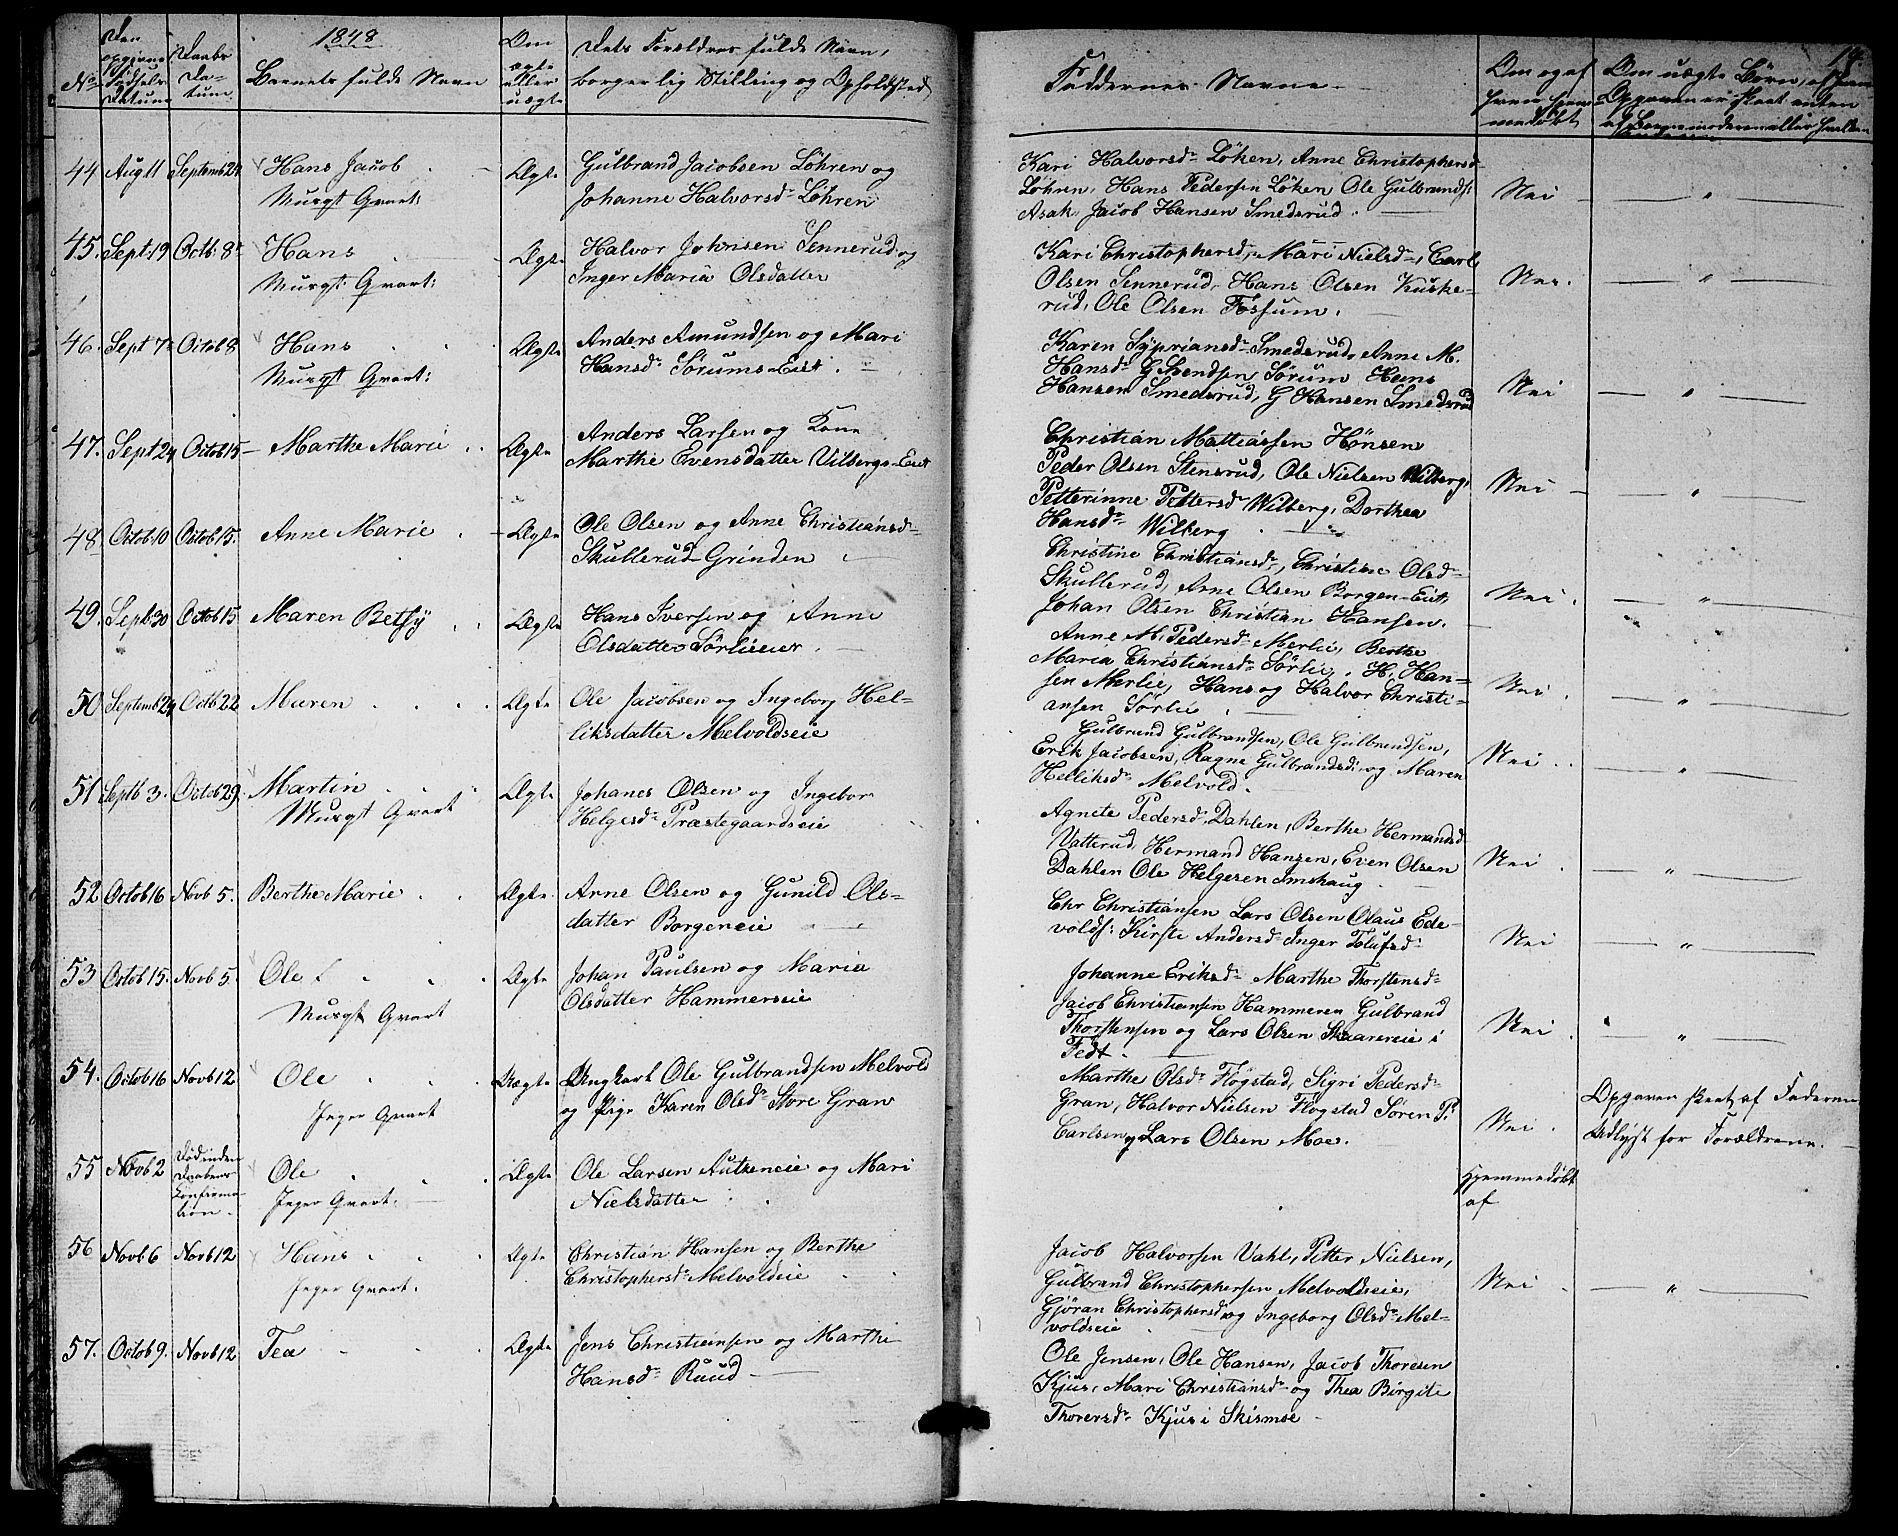 1848
No
Den opgivne Fødsels Datum
Daabs Datum
Barnets fulde Navn
Om ægte eller uægte
Dets Forældres fulde Navn,
borgerlig Stilling og Opholdsted
Faddernes Navne
Om og af hvem hjemmedøbt
Om uægte Børn, af hvem
Opgaven er skeet enten
af Barnemoderen eller
44 Aug 11 Septemb 24 Hans Jacob Ægte Gulbrand Jacobsen Løhren og
Johanne Halvorsd. Løhren
Kari Halvorsd. Løken, Anne Christophersd
Løhren, Hans Pedersen Løken Ole Gulbrands:
Asak Jacob Hansen Smedsrud. Nei — " —
45. Sept: 19 Octb: 8 Hans Ægte Halvor Johnsen Sennerud og
Inger Maria Olsdatter
Kari Christophersd, Mari Nielsd, Carl
Olsen Sennerud, Hans Olsen Kuske-
rud, Ole Olsen Fossum. Nei. — " —
46. Sept 7 Octob 8 Hans Ægte Anders Amundsen og Mari
Hansd. Sørums-Eiet.
Karen Sypriansd. Smedsrud, Anne M.
Hansd. G Svendsen Sørum Hans
Hansen Smedsrud, G Hansen Smedsrud Nei — " —
47. Sept 24 Octob 15 Marthe Marie Ægte Anders Larsen og Kone
Marthe Evensdatter Vilbergs-Eiet
Christian Mattiassen Hønsen
Peder Olsen Stensrud, Ole Nielsen Wilberg,
Petterinne Pettersd. Wilberg, Dorthea
Hansd. Wilberg Nei — " —
48. Octob. 10 Octob 15. Anne Marie Ægte Ole Olsen og Anne Christiansd.
Skullerud-Grinden
Christine Christiansd., Christine Olsd.
Skullerud, Arne Olsen Borgen-Eiet,
Johan Olsen Christian Hansen. Nei. — " —
49. Sept: 30 Octob 15 Maren Betsy Ægte Hans Iversen og Anne
Olsdatter Sørlieeier.
Anne M. Pedersd. Merlie, Berthe
Maria Christiansd. Sørlie, H. Han-
sen Merlie, Hans og Halvor Christi-
ansen Sørlie. Nei. — " —
50 Septemb 24 Octb 22 Maren Ægte Ole Jacobsen og Ingeborg Hel-
liksdatter Melvoldseie
Gulbrand Gulbrandsen, Ole Gulbrandsen,
Erik Jacobsen, Ragne Gulbrandsd: og Maren
Helliksd. Melvold. Nei. — " —
51 Septb 3. Octob 29. Martin Ægte Johanes Olsen og Ingebor
Helgesd. Præstegaardseie
Agnete Pedersd, Dahlen, Berthe Hermandsd
Vatterud, Hermand Hansen, Even Olsen
Dahlen Ole Helgesen Imshaug Nei. — " —
52 Octob 16 Novb 5. Berthe Marie Ægte. Arne Olsen og Gunild Ols-
datter Borgeneie
Chr Christiansen Lars Olsen Olaus Ede-
volds: Kirste Andersd. Inger Tolufsd. Nei — " —
53 Octob 15. Novb 5 Ole Ægte Johan Paulsen og Maria
Olsdatter Hammerseie
Johanne Eriksd. Marthe Thorstensd.
Jacob Christiansen Hammeren Gulbrand
Thorstensen og Lars Olsen Skaareneie i
Fedt. Nei. — " —
54. Octob 16 Novb 12. Ole Uægte Ungkarl Ole Gulbrandsen Melvold
og Pige Karen Olsd. Store Gran
Marthe Olsd. Flogstad, Sigri Pedersd.
Gran, Halvor Nielsen Flogstad Søren P.
Carlsen, Lars Olsen Moe. Nei. Opgaven skeet af Faderen
Udlyst for Forældrene.
55 Novb 2 Død inden Daabens Confirmation. Ole Ægte Ole Larsen Autneneie og Mari
Nielsdatter
Hjemmedøbt af
56 Novb 6 Novb 12 Hans Ægte Christian Hansen og Berthe
Christophersd. Melvoldseie
Jacob Halvorsen Vahl, Petter Nielsen,
Gulbrand Christophersen Melvoldseie,
Gjøran Christophersd. og Ingeborg Olsd. Mel-
voldseie Nei. — " —
57. Octob 9. Novb 12 Tea Ægte Jens Christiansen og Marthe
Hansd. Ruud
Ole Jensen, Ole Hansen, Jacob Thoresen
Kjus, Mari Christiansd. og Thea Birgite
Thorersd. Kjus i Skismoe